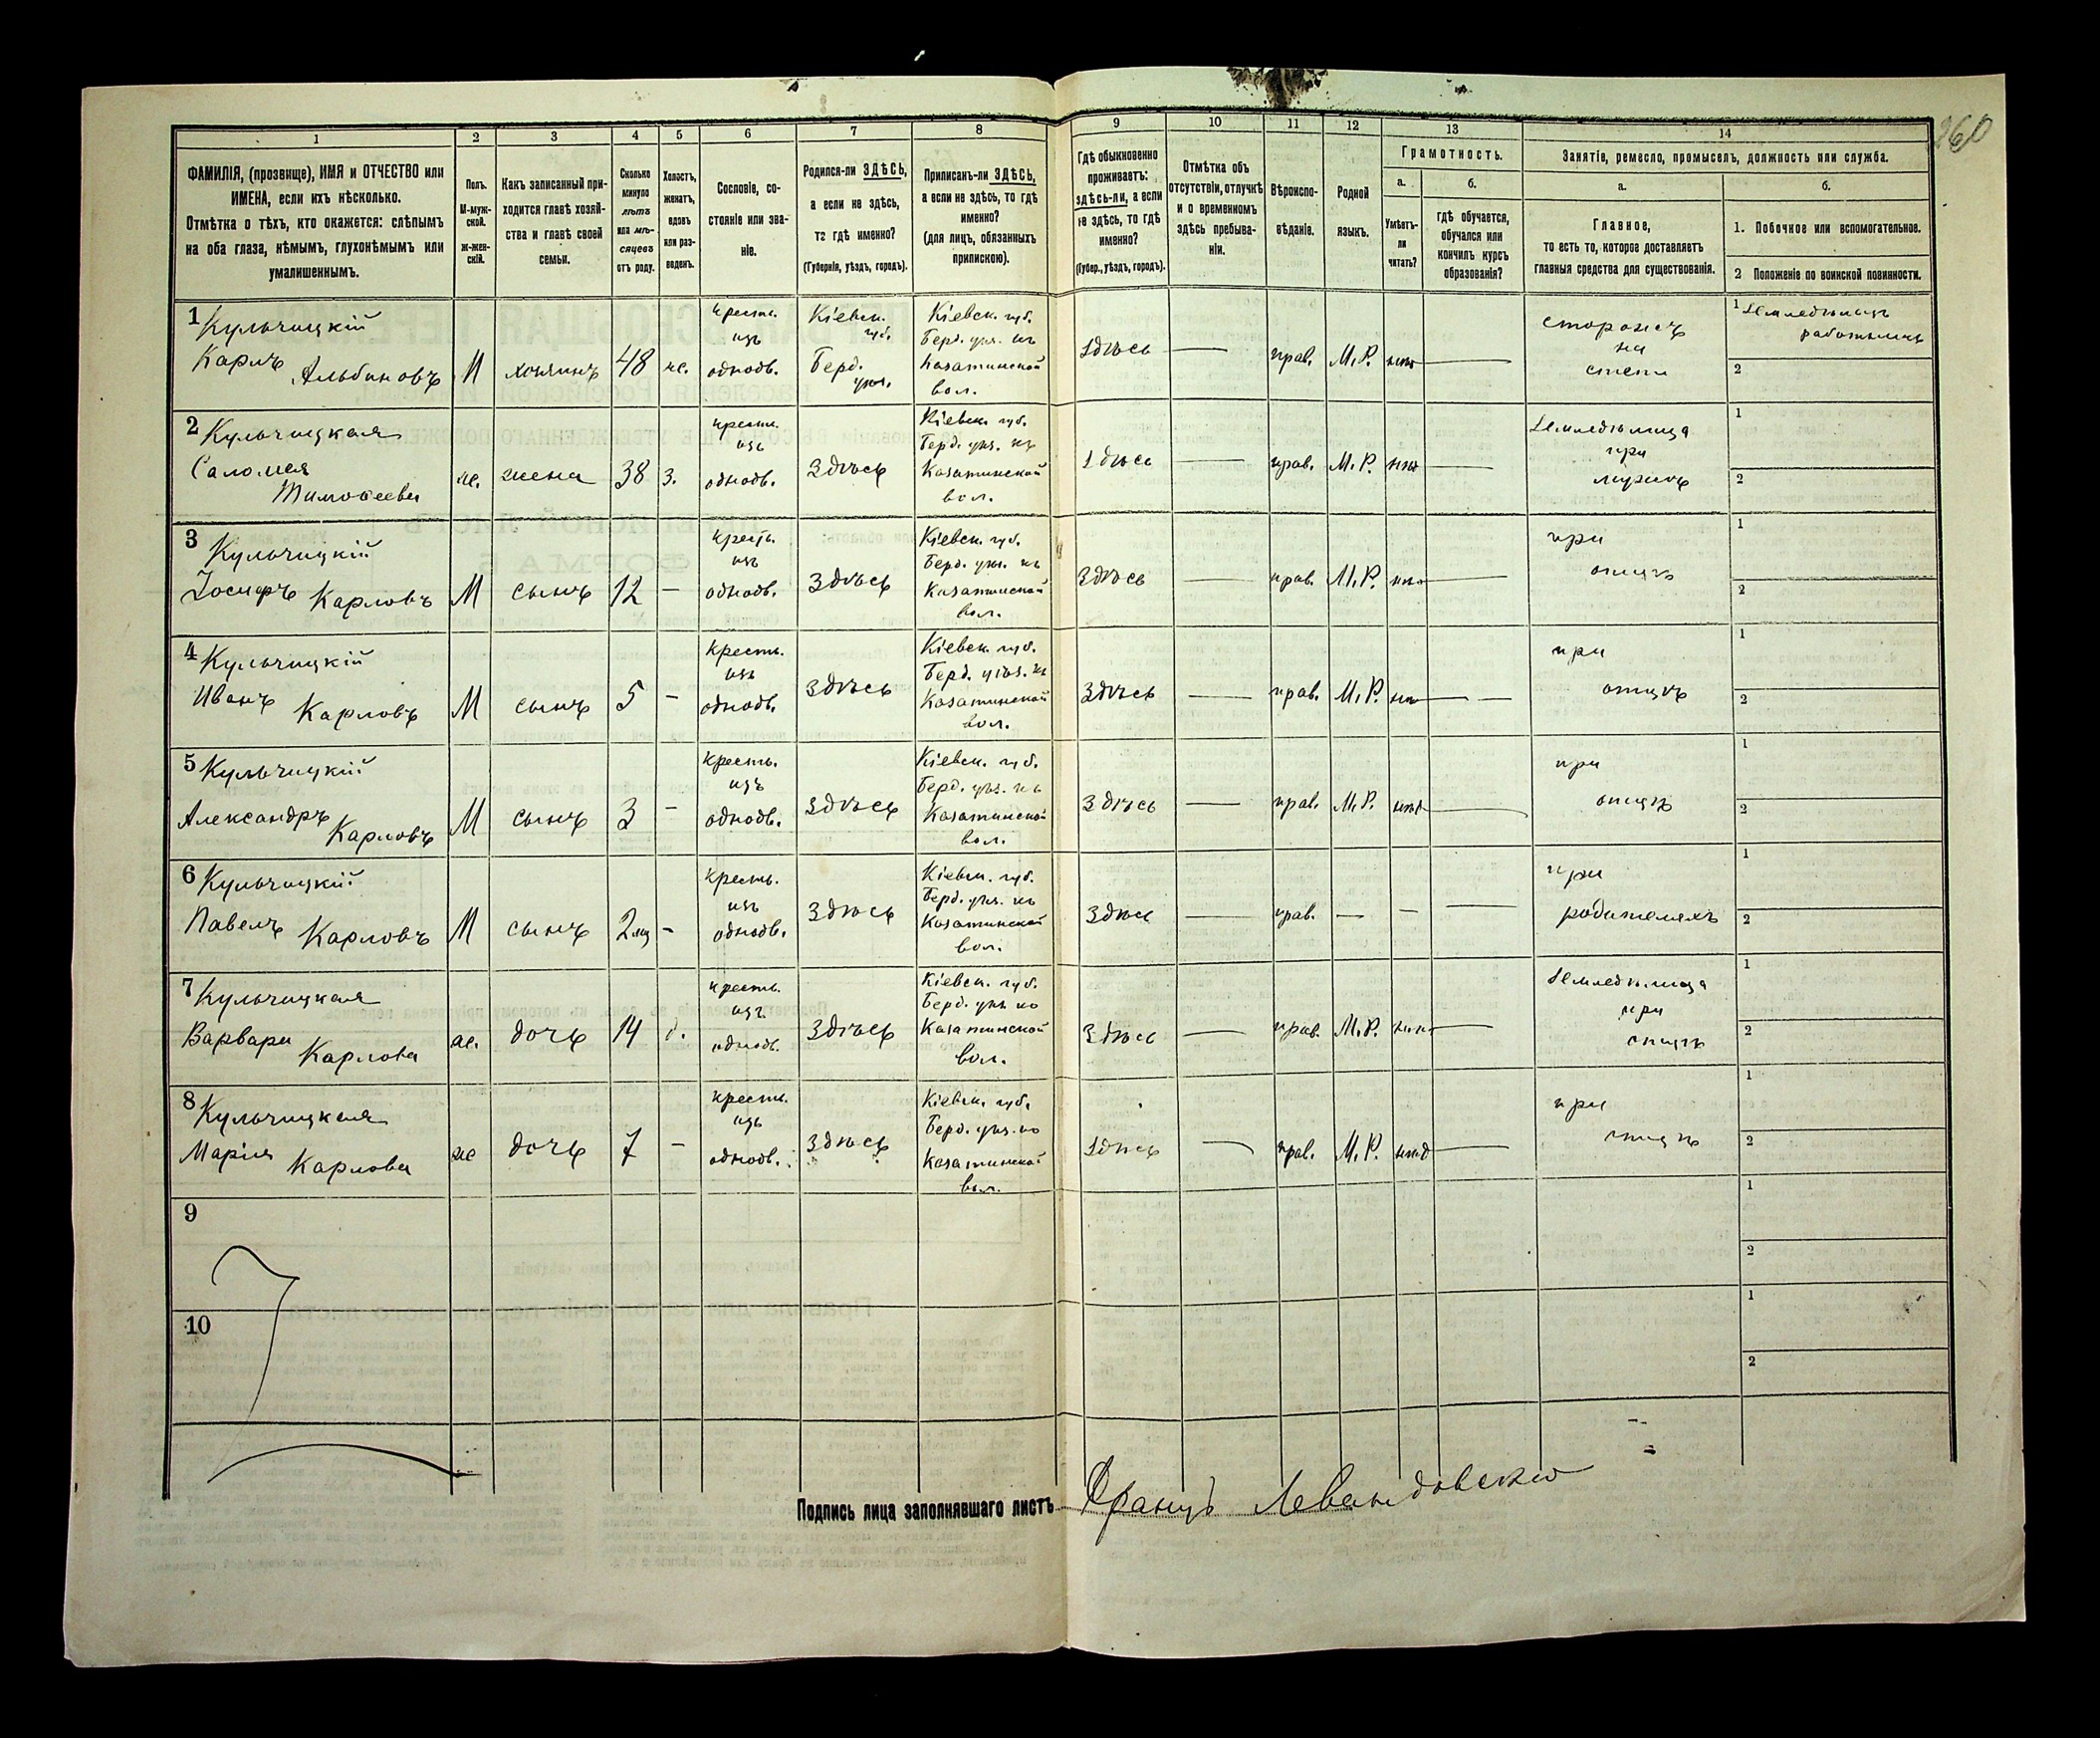 260
1 2 3 4 5 6 7 8 9 10 11 12 13 14
ФАМИЛІЯ, (прозвище), ИМЯ и ОТЧЕСТВО или
ИМЕНА, если ихъ нѣсколько.
Отмѣтка о тѣхъ, кто окажется: слѣпымъ
на оба глаза, нѣмымъ, глухонѣмымъ или
умалишеннымъ.
Полъ.
М-муж-
ской.
ж-жен-
скій.
Какъ записанный при-
ходится главѣ хозяй-
ства и главѣ своей
семьи.
Сколько
минуло
лѣтъ
или мѣ-
сяцевъ
отъ роду.
Холостъ,
женатъ,
вдовъ
или раз-
веденъ.
Сословіе, со-
стояніе или зва-
ніе.
Родился-ли ЗДѢСЬ,
а если не здѣсь,
то гдѣ именно?
(Губернія, уѣздъ, городъ).
Приписанъ-ли ЗДѢСЬ,
а если не здѣсь, то гдѣ
именно?
(для лицъ, обязанныхъ
припискою).
Гдѣ обыкновенно
проживаетъ:
здѣсь-ли, а если
не здѣсь, то гдѣ
именно?
(Губер., уѣздъ, городъ).
Отмѣтка объ
отсутствіи, отлучкѣ
и о временномъ
здѣсь пребыва-
ніи.
Вѣроиспо-
вѣданіе.
Родной
языкъ.
Грамотность.
а.
Умѣетъ-
ли
читать?
б.
гдѣ обучается,
обучался или
кончилъ курсъ
образованія?
Занятіе, ремесло, промыселъ, должность или служба.
а.
Главное,
то есть то, которое доставляетъ
главныя средства для существованія.
б.
1. Побочное или вспомогательное.
2 Положеніе по воинской повинности.
1 Кульчицкій
Карлъ Альбиновъ
М
хозяинъ
48
же.
крест.
изъ
однодв.
Кіевск.
губ.
Берд.
уѣз.
Кіевск. губ.
Берд. уѣз. къ
Казатинской
вол.
Здѣсь
—
прав.
М. Р.
нѣтъ
—
сторожъ
на
степи
1 Земледѣлецъ
работникъ
2
2 Кульчицкая
Саломея
Тимоѳеева
же.
жена
38
з.
крест.
изъ
однодв.
Здѣсь
Кіевск. губ.
Берд. уѣз. къ
Казатинской
вол.
Здѣсь
—
прав.
М. Р.
нѣтъ
—
Земледѣлица
при
мужѣ
1
2
3 Кульчицкій
Іосифъ Карловъ
М
сынъ
12
—
крест.
изъ
однодв.
Здѣсь
Кіевск. губ.
Берд. уѣз. къ
Казатинской
вол.
Здѣсь
—
прав.
М. Р.
нѣтъ
—
при
отцѣ
1
2
4 Кульчицкій
Иванъ Карловъ
М
сынъ
5
—
крест.
изъ
однодв.
Здѣсь
Кіевск. губ.
Берд. уѣз. къ
Казатинской
вол.
Здѣсь
—
прав.
М. Р.
нѣтъ
—
при
отцѣ
1
2
5 Кульчицкій
Александръ Карловъ
М
сынъ
3
—
кресть.
изъ
однодв.
Здѣсь
Кіевск. губ.
Берд. уѣз. къ
Казатинской
вол.
Здѣсь
—
прав.
М. Р.
нѣтъ
—
при
отцѣ
1
2
6 Кульчицкій
Павелъ Карловъ
М
сынъ
2 мц
—
кресть.
изъ
однодв.
Здѣсь
Кіевск. губ.
Берд. уѣз. къ
Казатинской
вол.
Здѣсь
—
прав.
—
—
—
при
родителяхъ
1
2
7 Кульчицкая
Варвара
Карлова
же.
дочь
14
д.
кресть.
изъ
однодв.
Здѣсь
Кіевск. губ.
Берд. уѣз. ко
Казатинской
вол.
Здѣсь
—
прав.
М. Р.
нѣтъ
—
Земледѣлица
при
отцѣ
1
2
8 Кульчицкая
Марія Карлова
же
дочь
7
—
кресть.
изъ
однодв.
Здѣсь
Кіевск. губ.
Берд. уѣз. ко
Казатинской
вол.
Здѣсь
—
прав.
М. Р.
нѣтъ
—
при
отцѣ
1
2
9
1
2
10
1
2
Подпись лица заполнявшаго листъ Францъ Левандовски